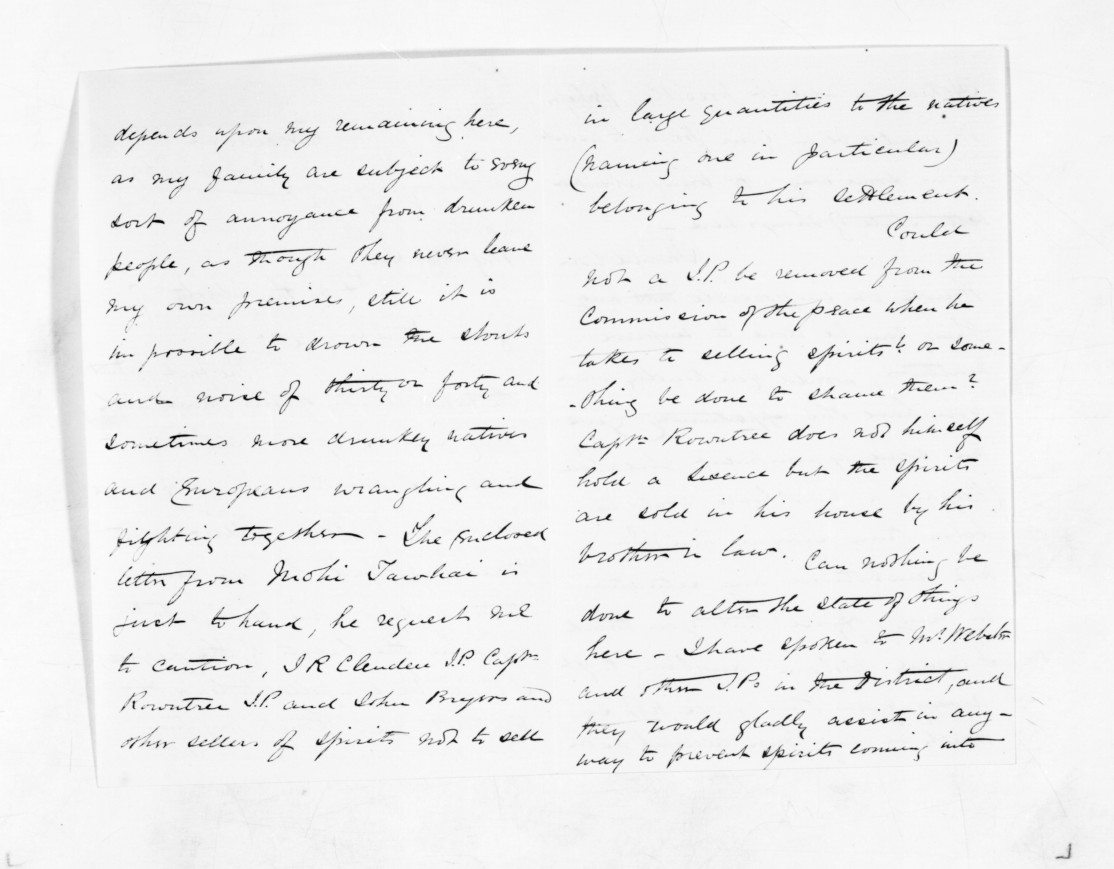 depends upon my remaining here,
as my family are subject to every
sort of annoyance from drunken
people, as though they never leave
my own premises, still it is
impossible to drown the shouts
and noise of thirty or forty and
sometimes more drunken natives
and Europeans wrangling and
fighting together - The enclosed
letter from Mohi Tawhai is
just to hand, he requests me
to caution, J R Clendon J.P. Captn
Rowntree J.P. and John Bryers and
other sellers of spirits not to sell
in large quantities to the natives
(naming one in particular)
belonging to his settlement.
Could
not a J.P. be removed from the
Commission of the peace when he
takes to selling spirits? or some-
-thing be done to shame them?
Captn Rowntree does not himself
hold a lisence but the spirits
are sold in his house by his
brother in law.
Can nothing be
done to alter the state of things
here - I have spoken to Mr. Webster
and other J.Ps in the District, and
they would gladly assist in any-
way to prevent spirits coming into